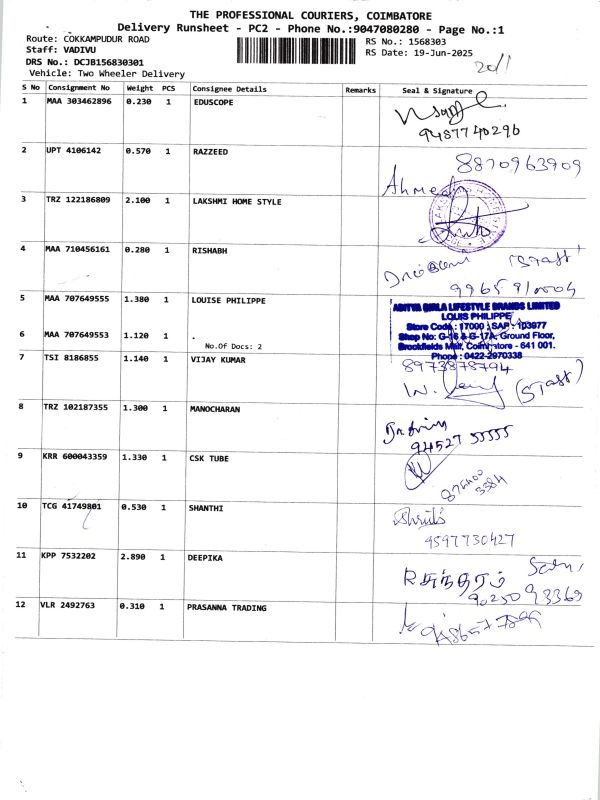 THE PROFESSIONAL COURIERS, COIMBATORE
Delivery Runsheet - PC2 - Phone No.:9047080280 - Page No.:1
Route: COKKAMPUDUR ROAD
RS No.: 1568303
Staff: VADIVU
RS Date: 19-Jun-2025
DRS No.: DCJB156830301
Vehicle: Two Wheeler Delivery
S No Consignment No Weight PCS Consignee Details Remarks Seal & Signature
1 MAA 303462896 0.230 1 EDUSCOPE
9487740296
2 UPT 4106142 0.570 1 RAZZEED
8870963909
Ahmed
3 TRZ 122186809 2.100 1 LAKSHMI HOME STYLE
4 MAA 710456161 0.280 1 RISHABH
(Staff)
5 MAA 707649555 1.380 1 LOUISE PHILIPPE
ADITYA BIRLA LIFESTYLE BRANDS LIMITED
LOUIS PHILIPPE
Store Code : 17000 SAP : 103977
Shop No: G-16 & G-17A, Ground Floor,
Brookfields Mall, Coimbatore - 641 001.
Phone : 0422-2970338
6 MAA 707649553 1.120 1
No.Of Docs: 2
7 TSI 8186855 1.140 1 VIJAY KUMAR
8973878794
(Staff)
8 TRZ 102187355 1.300 1 MANOCHARAN
94527 55555
9 KRR 600043359 1.330 1 CSK TUBE
10 TCG 41749801 0.530 1 SHANTHI
9597730427
11 KPP 7532202 2.890 1 DEEPIKA
R சுந்தரம்
9025093369
12 VLR 2492763 0.310 1 PRASANNA TRADING